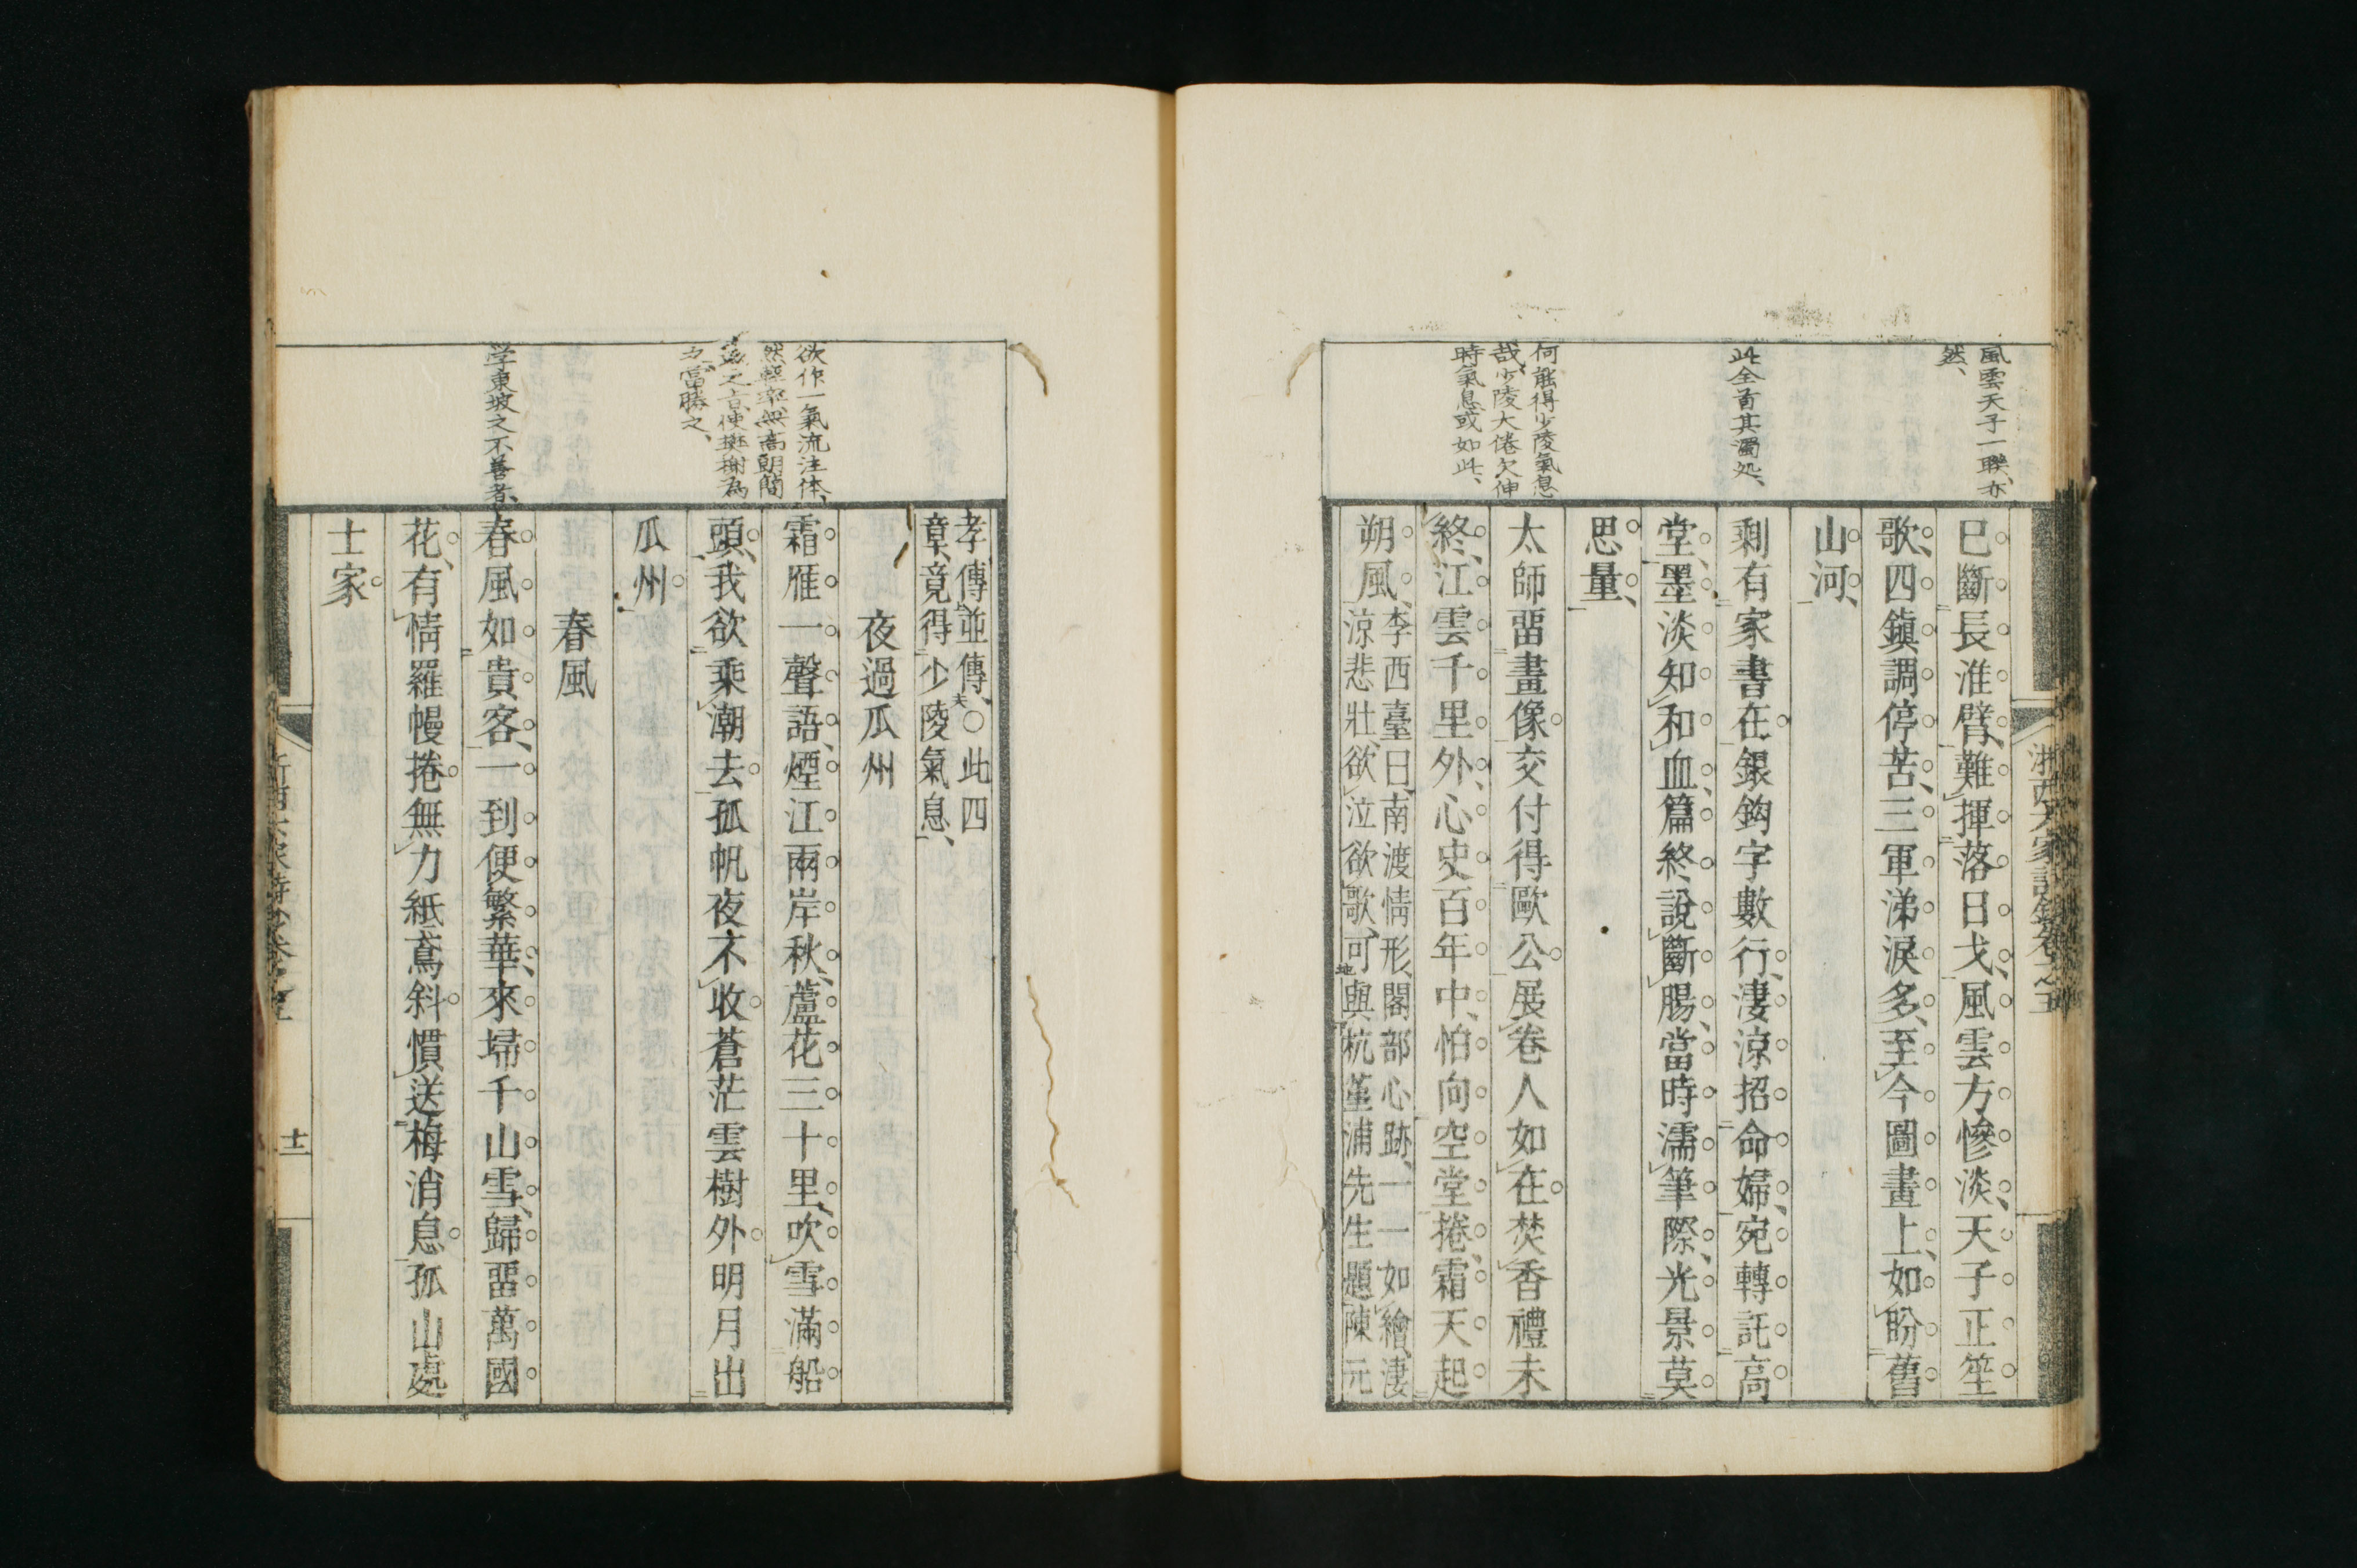 風雲天子一聯、亦
然、
此全首其濁処、
何能得少陵氣息
哉、少陵大倦欠伸
時氣息、或如此、
巳斷長淮臂、難揮落日戈、風雲方慘淡、天子正笙
歌、四鎮調停苦、三軍涕淚多、至今圖畫上、如盼舊
山河、
剩有家書在銀鈎字數行、淒涼招命婦、宛轉託高
堂、墨淡知和血、篇終說斷腸、當時濡筆際、光景莫
思量、
太師畱畫像交付得歐公展卷人如在焚香禮未
終、江雲千里外、心史百年中、怕向空堂捲、霜天起
朔風、
李西臺曰、南渡情形、閣部心跡、一一如繪、淒
涼悲壯、欲泣欲歌、可與杭堇浦先生題陳元
浙西六家詩鈔卷之五
欲作一氣流注体、
然輕率無高朗簡
遠之言、使樊榭為
之、當勝之、
学東坡之不善者、
孝傳並傳、○此四
章、竟得少陵氣息、
夜過瓜州
霜雁一聲語、煙江兩岸秋、蘆花三十里、吹雪滿船
頭、我欲乘潮去孤帆夜不收蒼茫雲樹外明月出
瓜州
春風
春風如貴客、一到便繁華、來埽千山雪、歸畱萬國
花、有情羅幔捲無力紙鳶斜慣送梅消息孤山處
士家
十一